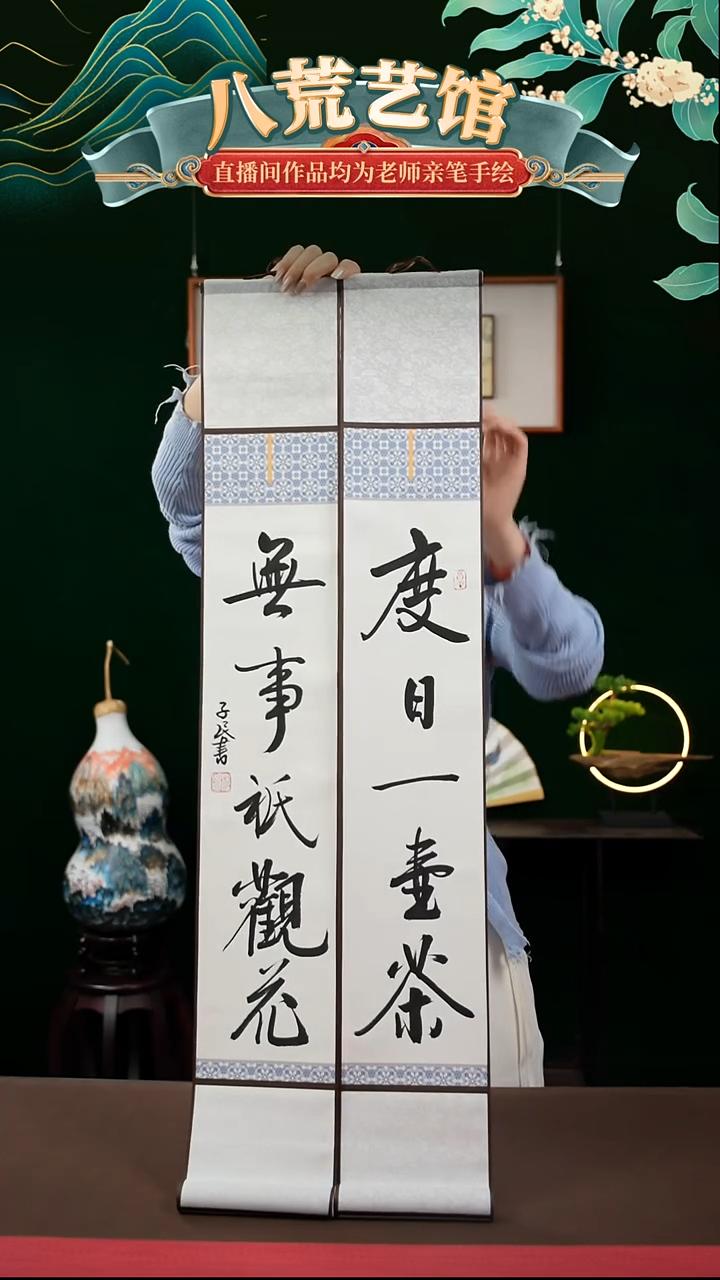 八荒艺馆
直播间作品均为老师亲笔手绘
度日一壶茶
無事祇觀花
子民書